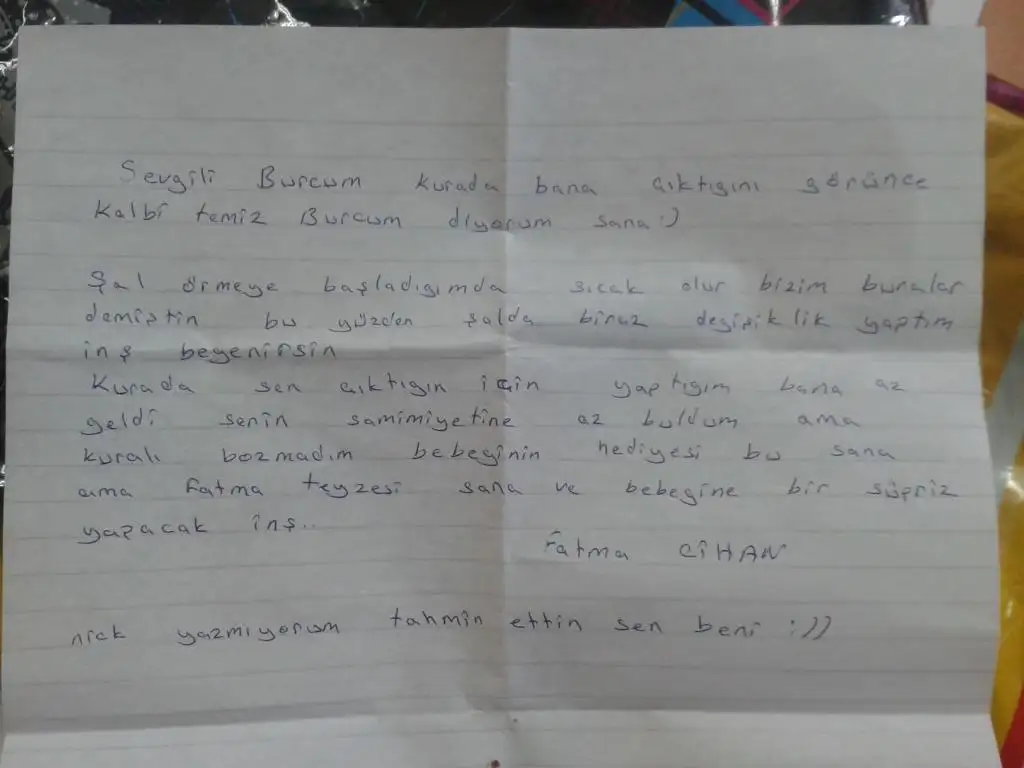 Sevgili Burcum kurada bana çıktıgını görünce
kalbi temiz Burcum diyorum sana :)
Şal örmeye başladıgımda sıcak olur bizim buralar
demiştin bu yüzden şalda biraz degişiklik yaptım
inş begenirsin
Kurada sen çıktıgın için yaptıgım bana az
geldi senin samimiyetine az buldum ama
kuralı bozmadım bebeginin hediyesi bu sana
ama Fatma teyzesi sana ve bebegine bir süpriz
yapacak inş..
Fatma CİHAN
nick yazmıyorum tahmin ettin sen beni :))